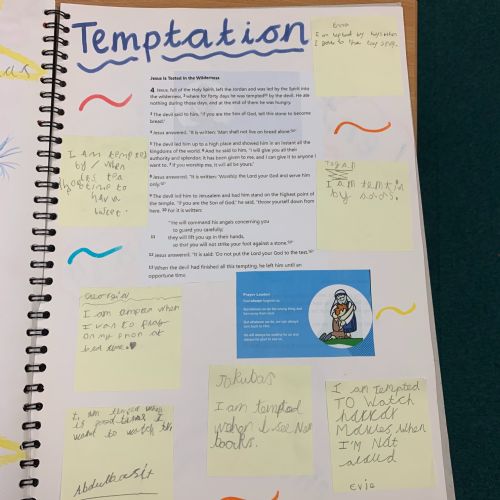 Temptation
Jesus Is Tested in the Wilderness
4 Jesus, full of the Holy Spirit, left the Jordan and was led by the Spirit into
the wilderness, 2 where for forty days he was tempted by the devil. He ate
nothing during those days, and at the end of them he was hungry.
3 The devil said to him, "If you are the Son of God, tell this stone to become
bread."
4 Jesus answered, "It is written: 'Man shall not live on bread alone.'"
5 The devil led him up to a high place and showed him in an instant all the
kingdoms of the world. 6 And he said to him, "I will give you all their
authority and splendor; it has been given to me, and I can give it to anyone I
want to. 7 If you worship me, it will all be yours."
8 Jesus answered, "It is written: 'Worship the Lord your God and serve him
only.'"
9 The devil led him to Jerusalem and had him stand on the highest point of
the temple. "If you are the Son of God," he said, "throw yourself down from
here. 10 For it is written:
"'He will command his angels concerning you
to guard you carefully;
11 they will lift you up in their hands,
so that you will not strike your foot against a stone.'"
12 Jesus answered, "It is said: 'Do not put the Lord your God to the test.'"
13 When the devil had finished all this tempting, he left him until an
opportune time.
I am tempted
by
when
time to
have a
sweet.
I am temtin
by
Georgia
I am
when
I want to play
on my phon at
bed time.
Prayer Leader:
Jokubas
I am tempted
when I see New
books.
I am TEMPTED
TO WATCH
harror
Movies When
I'M Not
alaud
Evie
want to watch
Abdulbasit